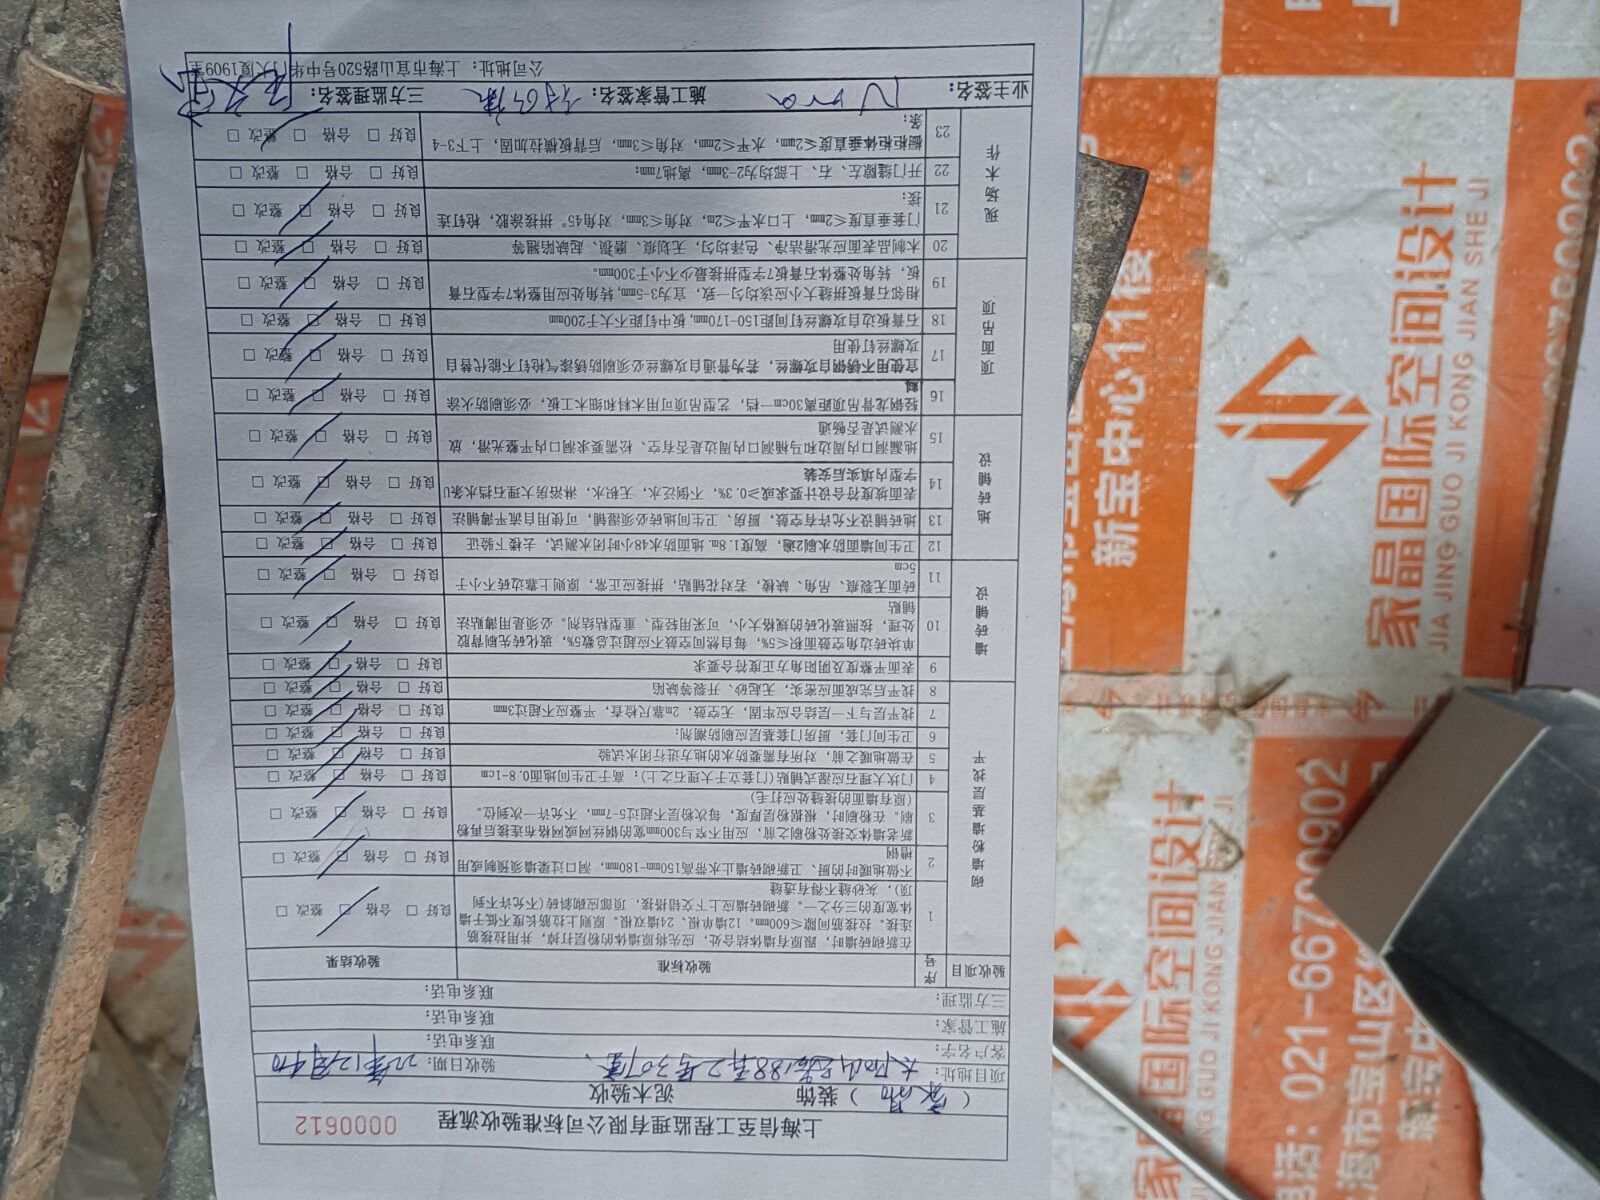 上海信至工程监理有限公司标准验收流程 0000612
（家晶）装饰 泥木验收
项目地址： 188弄2号307室 验收日期：22年12月4日
客户名字： 联系电话：
施工管家： 联系电话：
三方监理： 联系电话：
验收项目 序号 验收标准 验收结果
砌墙粉墙基层找平
1 在新砌砖墙时，跟原有墙体结合处，应先将原墙体的粉层打掉，并用拉接筋
连接。拉接筋间隙≤600mm。12墙单根、24墙双根。原则上拉筋长度不低于墙
体宽度的三分之一。新砌砖墙应上下交错搭接，顶部应砌斜砖(不允许不到
顶)，灰砂缝不得有透缝
良好 □ 合格 □ 整改 □
2 不做地暖时的厨、卫新砌砖墙止水带高150mm-180mm，洞口过梁墙须预制或用
槽钢
良好 □ 合格 □ 整改 □
3 新老墙体交接处粉刷之前，应用不窄与300mm宽的钢丝网或网格布连接后再粉
刷。在粉刷时，根据粉层厚度，每次粉层不超过5-7mm，不允许一次到位。
(原有墙面的接缝处应打毛)
良好 □ 合格 □ 整改 □
4 门坎大理石应湿式铺贴(门套立于大理石之上)；高于卫生间地面0.8-1cm
良好 □ 合格 □ 整改 □
5 在做地暖之前，对所有需要防水的地方进行闭水试验
良好 □ 合格 □ 整改 □
6 卫生间门套，厨房门套基层应刷防潮剂；
良好 □ 合格 □ 整改 □
7 找平层与下一层结合应牢固，无空鼓，2m靠尺检查，平整应不超过3mm
良好 □ 合格 □ 整改 □
8 找平后完成面应密实，无起砂、开裂等缺陷
良好 □ 合格 □ 整改 □
墙砖铺设
9 表面平整度及阴阳角方正度符合要求
良好 □ 合格 □ 整改 □
10 单块砖边角空鼓面积≤5%，每自然间空鼓不应超过总数5%，玻化砖先刷背胶
处理，按照玻化砖的规格大小，可采用轻型、重型粘结剂，必须是用薄贴法
铺贴
良好 □ 合格 □ 整改 □
11 砖面无裂痕、吊角、缺棱，若对花铺贴，拼接应正常，原则上靠边砖不小于
5cm
良好 □ 合格 □ 整改 □
地砖铺设
12 卫生间墙面防水刷2遍，高度1.8m.地面防水48小时闭水测试，去楼下验证
良好 □ 合格 □ 整改 □
13 地砖铺设不允许有空鼓，厨房、卫生间地砖必须湿铺，可使用自流平薄铺法
良好 □ 合格 □ 整改 □
14 表面坡度符合设计要求或≥0.3%，不倒泛水，无积水，淋浴房大理石挡水条U
字型内填实后安装
良好 □ 合格 □ 整改 □
15 地漏洞口内周边和马桶洞口内周边是否有空、松需要求洞口内平整光滑，放
水测试是否畅通
良好 □ 合格 □ 整改 □
顶面吊顶
16 轻钢龙骨吊顶距离30cm一档，艺型吊顶可用木料和细木工板，必须刷防火涂
料
良好 □ 合格 □ 整改 □
17 宜使用不锈钢自攻螺丝，若为普通自攻螺丝必须刷防锈漆气枪钉不能代替自
攻螺丝钉使用
良好 □ 合格 □ 整改 □
18 石膏板边自攻螺丝钉间距150-170mm,板中钉距不大于200mm
良好 □ 合格 □ 整改 □
19 相邻石膏板拼缝大小应该均匀一致，宜为3-5mm,转角处应用整体7字型石膏
板，转角处整体石膏板7字型拼接最少不小于300mm。
良好 □ 合格 □ 整改 □
现场木作
20 木制品表面应光滑洁净、色泽均匀，无划痕、磨损、起缺陷翘等
良好 □ 合格 □ 整改 □
21 门套垂直度≤2mm，上口水平≤2m，对角≤3mm，对角45°拼接涂胶，枪钉连
接；
良好 □ 合格 □ 整改 □
22 开门缝隙左、右、上部均为2-3mm，离地7mm；
良好 □ 合格 □ 整改 □
23 橱柜柜体垂直度≤2mm，水平≤2mm，对角≤3mm，后背板横拉加固，上下3-4
条；
良好 □ 合格 □ 整改 □
业主签名： 施工管家签名： 三方监理签名：
公司地址：上海市宜山路520号中华门大厦1909室
家晶国际空间设计
JIA JING GUO JI KONG JIAN SHE JI
新宝中心11楼
家晶国际空间设计
电话：021-66780902